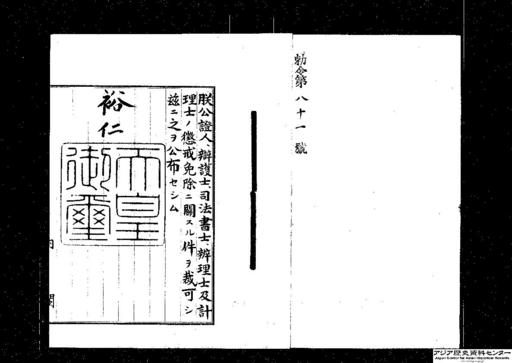 勅令第八十一號
朕公證人、辯護士、司法書士、辨理士及計
理士ノ懲戒免除ニ關スル件ヲ裁可シ
茲ニ之ヲ公布セシム
裕仁
天皇
御璽
内
閣
アジア歴史資料センター
Japan Center for Asian Historical Records